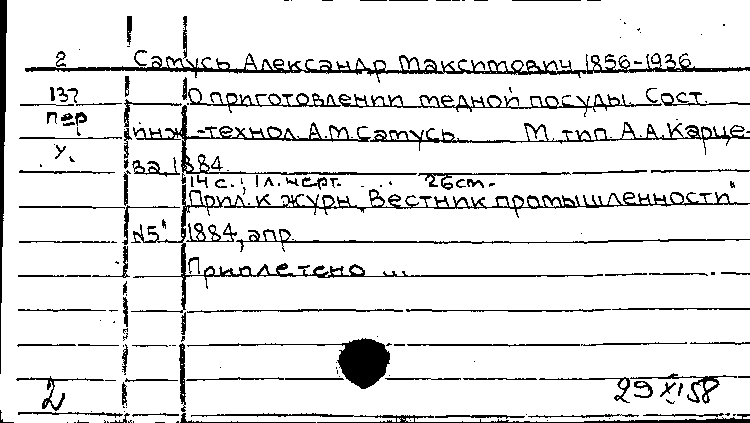 2 Сатусь Александр Максимович, 1856-1936
137 О приготовлении медной посуды. Сост.
пер инж.-технол. А.М. Сатусь. М., тип. А.А. Карце-
У. ва, 1884.
14 с.; 1 л. черт. 26 см.
Прил. к журн. "Вестник промышленности"
N5. 1884, апр.
Приплетено ...
2 29 XI 58